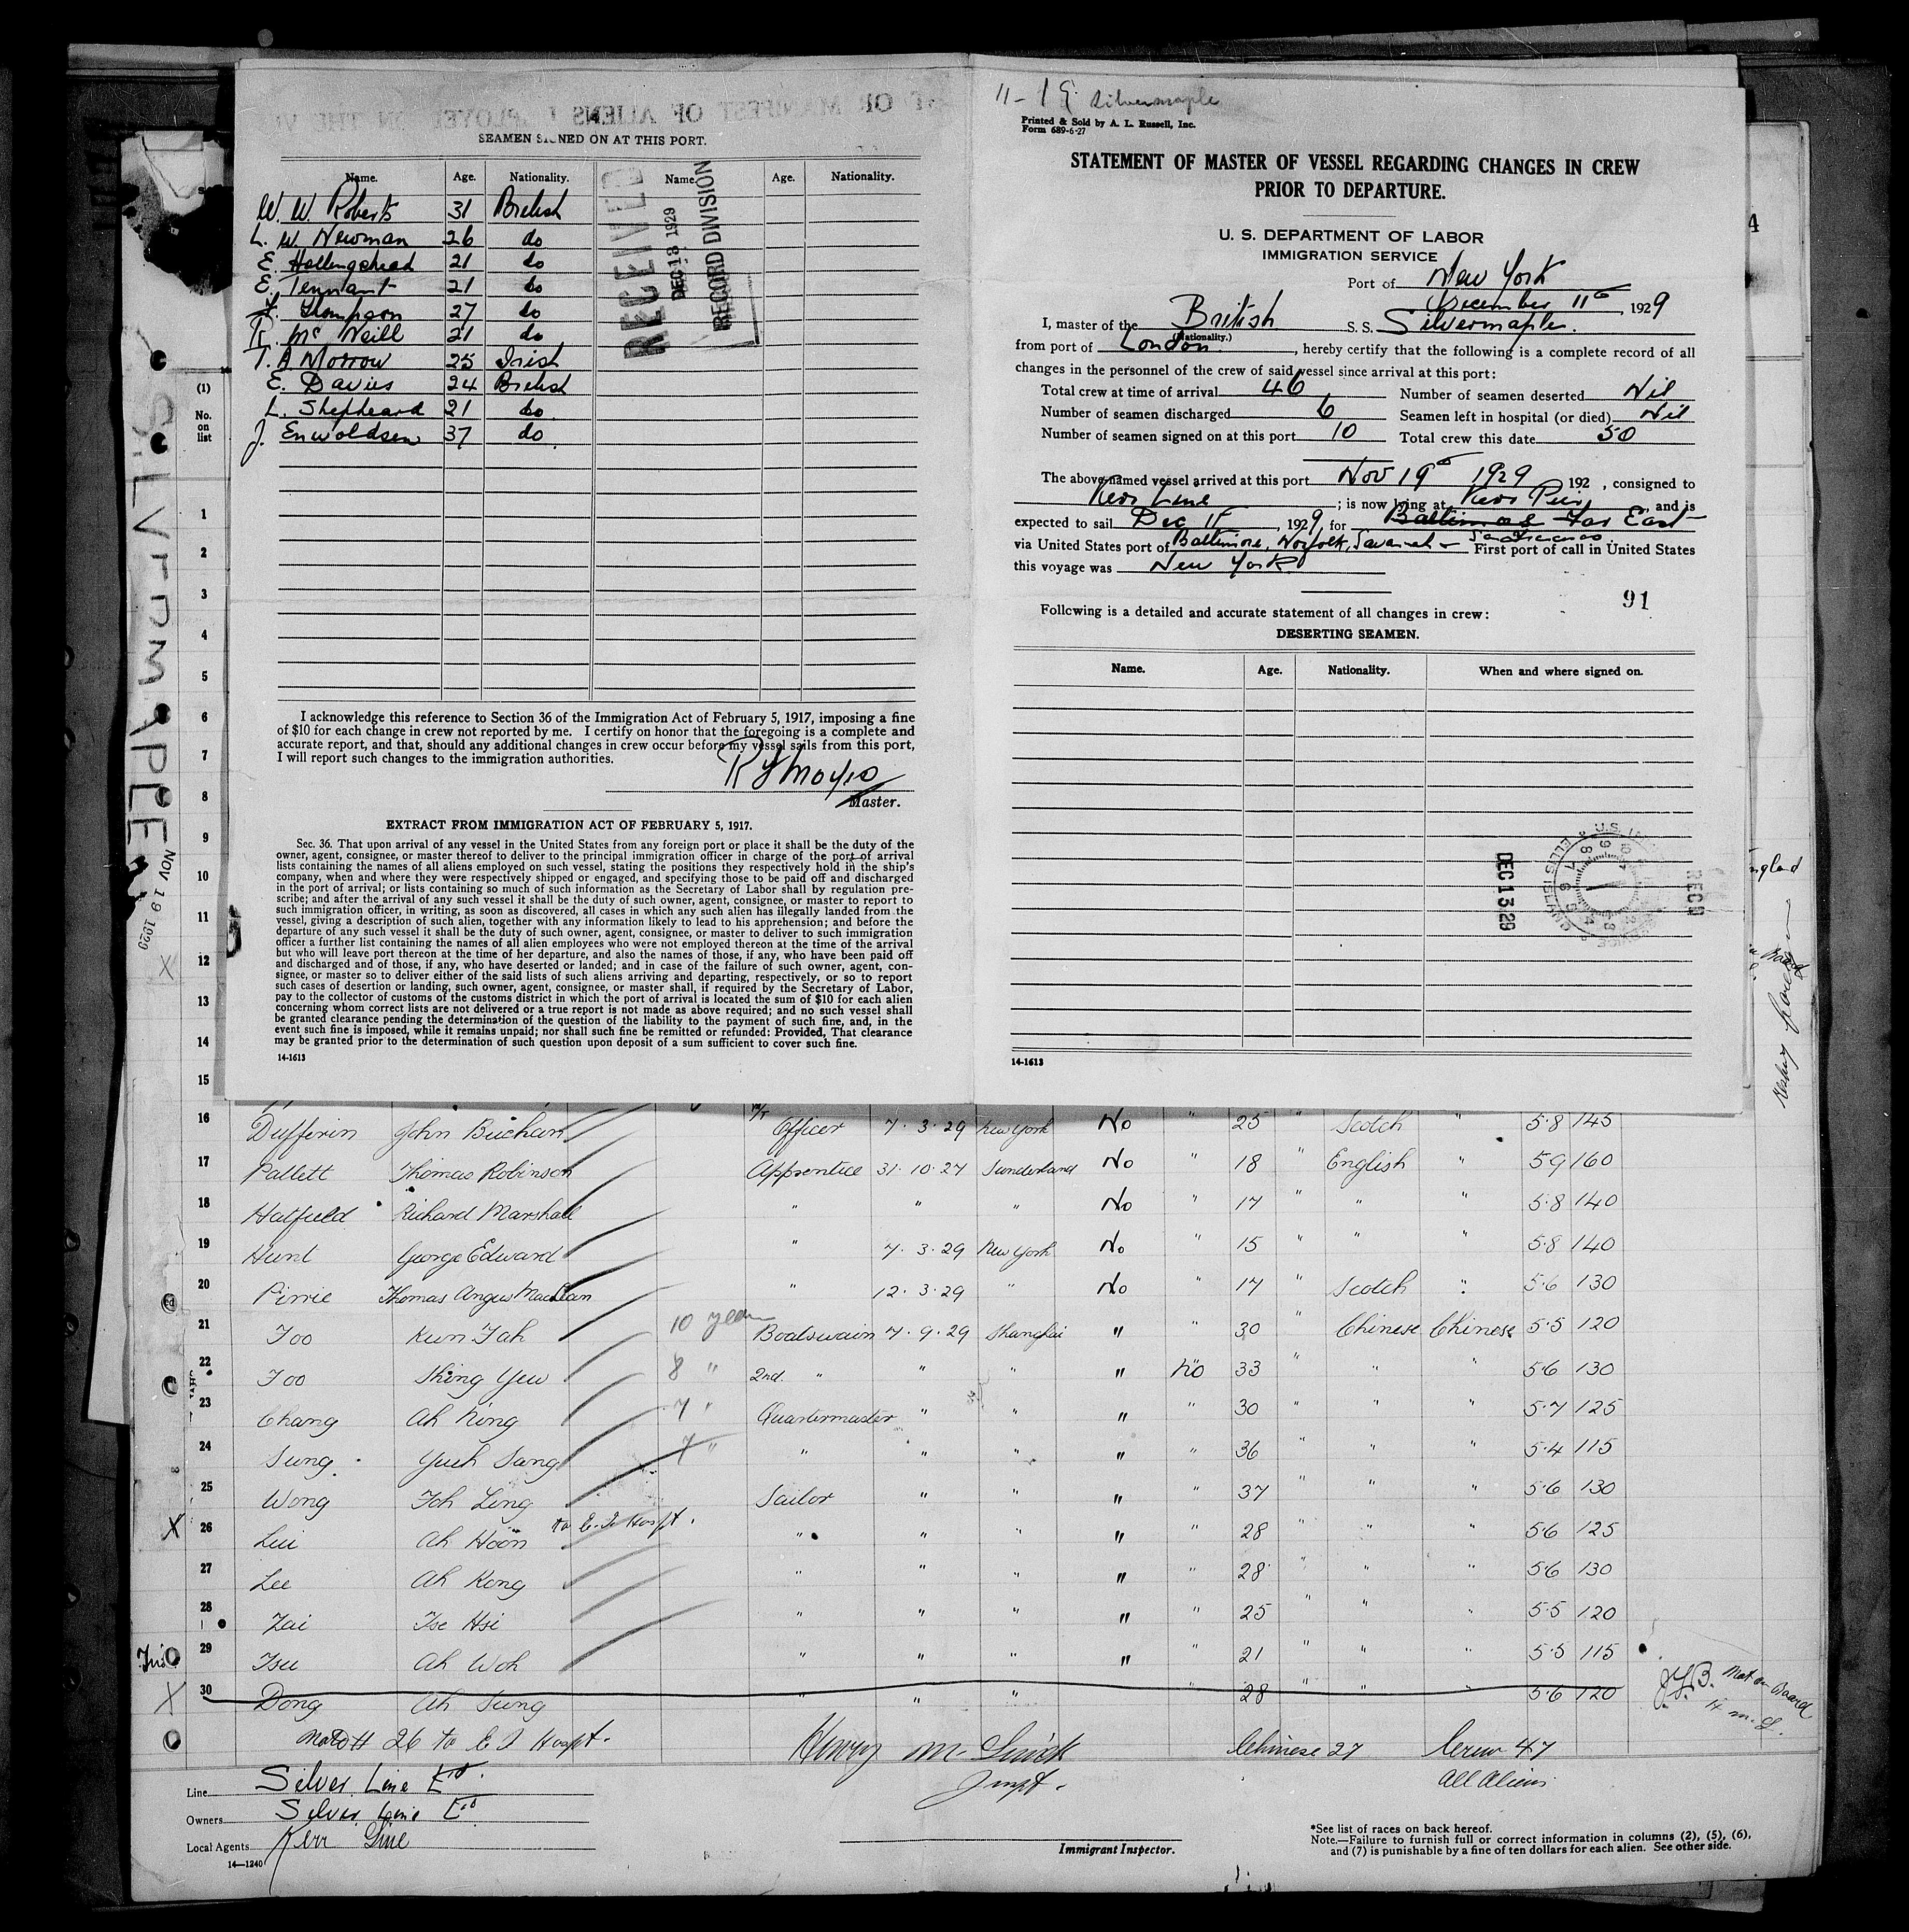 SEAMEN SIGNED ON AT THIS PORT.
Name. Age. Nationality. Name. Age. Nationality.
W. W. Roberts 31 British
L. W. Newman 26 do
E. Hollingshead 21 do
E. Tennant 21 do
Thompson 27 do
R. Mc Neill 21 do
T. A Morrow 25 Irish
E. Davies 24 British
L. Shepheard 21 do
J. Enwoldsen 37 do
RECEIVED
DEC 13 1929
RECORD DIVISION
I acknowledge this reference to Section 36 of the Immigration Act of February 5, 1917, imposing a fine
of $10 for each change in crew not reported by me. I certify on honor that the foregoing is a complete and
accurate report, and that, should any additional changes in crew occur before my vessel sails from this port,
I will report such changes to the immigration authorities.
Master.
EXTRACT FROM IMMIGRATION ACT OF FEBRUARY 5, 1917.
Sec. 36. That upon arrival of any vessel in the United States from any foreign port or place it shall be the duty of the
owner, agent, consignee, or master thereof to deliver to the principal immigration officer in charge of the port of arrival
lists containing the names of all aliens employed on such vessel, stating the positions they respectively hold in the ship's
company, when and where they were respectively shipped or engaged, and specifying those to be paid off and discharged
in the port of arrival; or lists containing so much of such information as the Secretary of Labor shall by regulation pre-
scribe; and after the arrival of any such vessel it shall be the duty of such owner, agent, consignee, or master to report to
such immigration officer, in writing, as soon as discovered, all cases in which any such alien has illegally landed from the
vessel, giving a description of such alien, together with any information likely to lead to his apprehension; and before the
departure of any such vessel it shall be the duty of such owner, agent, consignee, or master to deliver to such immigration
officer a further list containing the names of all alien employees who were not employed thereon at the time of the arrival
but who will leave port thereon at the time of her departure, and also the names of those, if any, who have been paid off
and discharged and of those, if any, who have deserted or landed; and in case of the failure of such owner, agent, con-
signee, or master so to deliver either of the said lists of such aliens arriving and departing, respectively, or so to report
such cases of desertion or landing, such owner, agent, consignee, or master shall, if required by the Secretary of Labor,
pay to the collector of customs of the customs district in which the port of arrival is located the sum of $10 for each alien
concerning whom correct lists are not delivered or a true report is not made as above required; and no such vessel shall
be granted clearance pending the determination of the question of the liability to the payment of such fine, and, in the
event such fine is imposed, while it remains unpaid; nor shall such fine be remitted or refunded: Provided, That clearance
may be granted prior to the determination of such question upon deposit of a sum sufficient to cover such fine.
14-1613
11-19 Silvermaple
Printed & Sold by A. L. Russell, Inc.
Form 689-6-27
STATEMENT OF MASTER OF VESSEL REGARDING CHANGES IN CREW
PRIOR TO DEPARTURE.
U. S. DEPARTMENT OF LABOR
IMMIGRATION SERVICE
Port of New York
December 11th, 1929
I, master of the British S. S. Silvermaple.
(Nationality.)
from port of London, hereby certify that the following is a complete record of all
changes in the personnel of the crew of said vessel since arrival at this port:
Total crew at time of arrival 46 Number of seamen deserted Nil
Number of seamen discharged 6 Seamen left in hospital (or died) Nil
Number of seamen signed on at this port 10 Total crew this date 50
The above-named vessel arrived at this port Nov 19th 1929 192 , consigned to
Kerr Line ; is now lying at Kerr Pier and is
expected to sail Dec 11, 1929, for Baltimore Far East
via United States port of Baltimore, Norfolk, Savanah San Francisco. First port of call in United States
this voyage was New York
91
Following is a detailed and accurate statement of all changes in crew:
DESERTING SEAMEN.
Name. Age. Nationality. When and where signed on.
DEC 13 29
REC'D
U.S.
ELLIS ISLAND
14-1613
4
(1)
No.
on
list
SILVERMAPLE
NOV 19 1929
1
2
3
4
5
6
7
8
9
10
11
12
13
14
15
16 Dufferin John Buchan Officer 7.3.29 New York No " 25 " Scotch " 5.8 145
17 Pallett Thomas Robinson Apprentice 31.10.27 Sunderland No " 18 " English " 5.9 160
18 Hatfield Richard Marshall " " " No " 17 " " " 5.8 140
19 Hunt George Edward " 7.3.29 New York No " 15 " " " 5.8 140
20 Pirrie Thomas Angus MacLean " 12.3.29 " No " 17 " Scotch " 5.6 130
21 Foo Kun Fah 10 years Boatswain 7.9.29 Shanghai " " 30 " Chinese Chinese 5.5 120
22 Foo Shing Yew 8 " 2nd " " " " No 33 " " " 5.6 130
23 Chang Ah Ning 7 " Quartermaster " " " " 30 " " 5.7 125
24 Sung Yueh Sang 7 " " " " " " 36 " " " 5.4 115
25 Wong Foh Ling Sailor " " " " 37 " " " 5.6 130
X 26 Lui Ah Hoon to E. I. Hospt. " " " " " 28 " " " 5.6 125
27 Lee Ah Kong " " " " " 28 " " " 5.6 130
28 Zai Tse Hsi " " " " " 25 " " " 5.5 120
29 Tsu Ah Woh " " " " " 21 " " " 5.5 115
X 30 Dong Ah Sung " " " " 28 " " " 5.6 120
J.F.B. Not on Board
H. M. L.
26 to E I Hospt. Henry M. Chinese 27 Crew 47
Inspt. All Aliens
Line Silver Line Ltd.
Owners Silver Line Ltd
Local Agents Kerr Line
14—1240
Immigrant Inspector.
*See list of races on back hereof.
Note.—Failure to furnish full or correct information in columns (2), (5), (6),
and (7) is punishable by a fine of ten dollars for each alien. See other side.